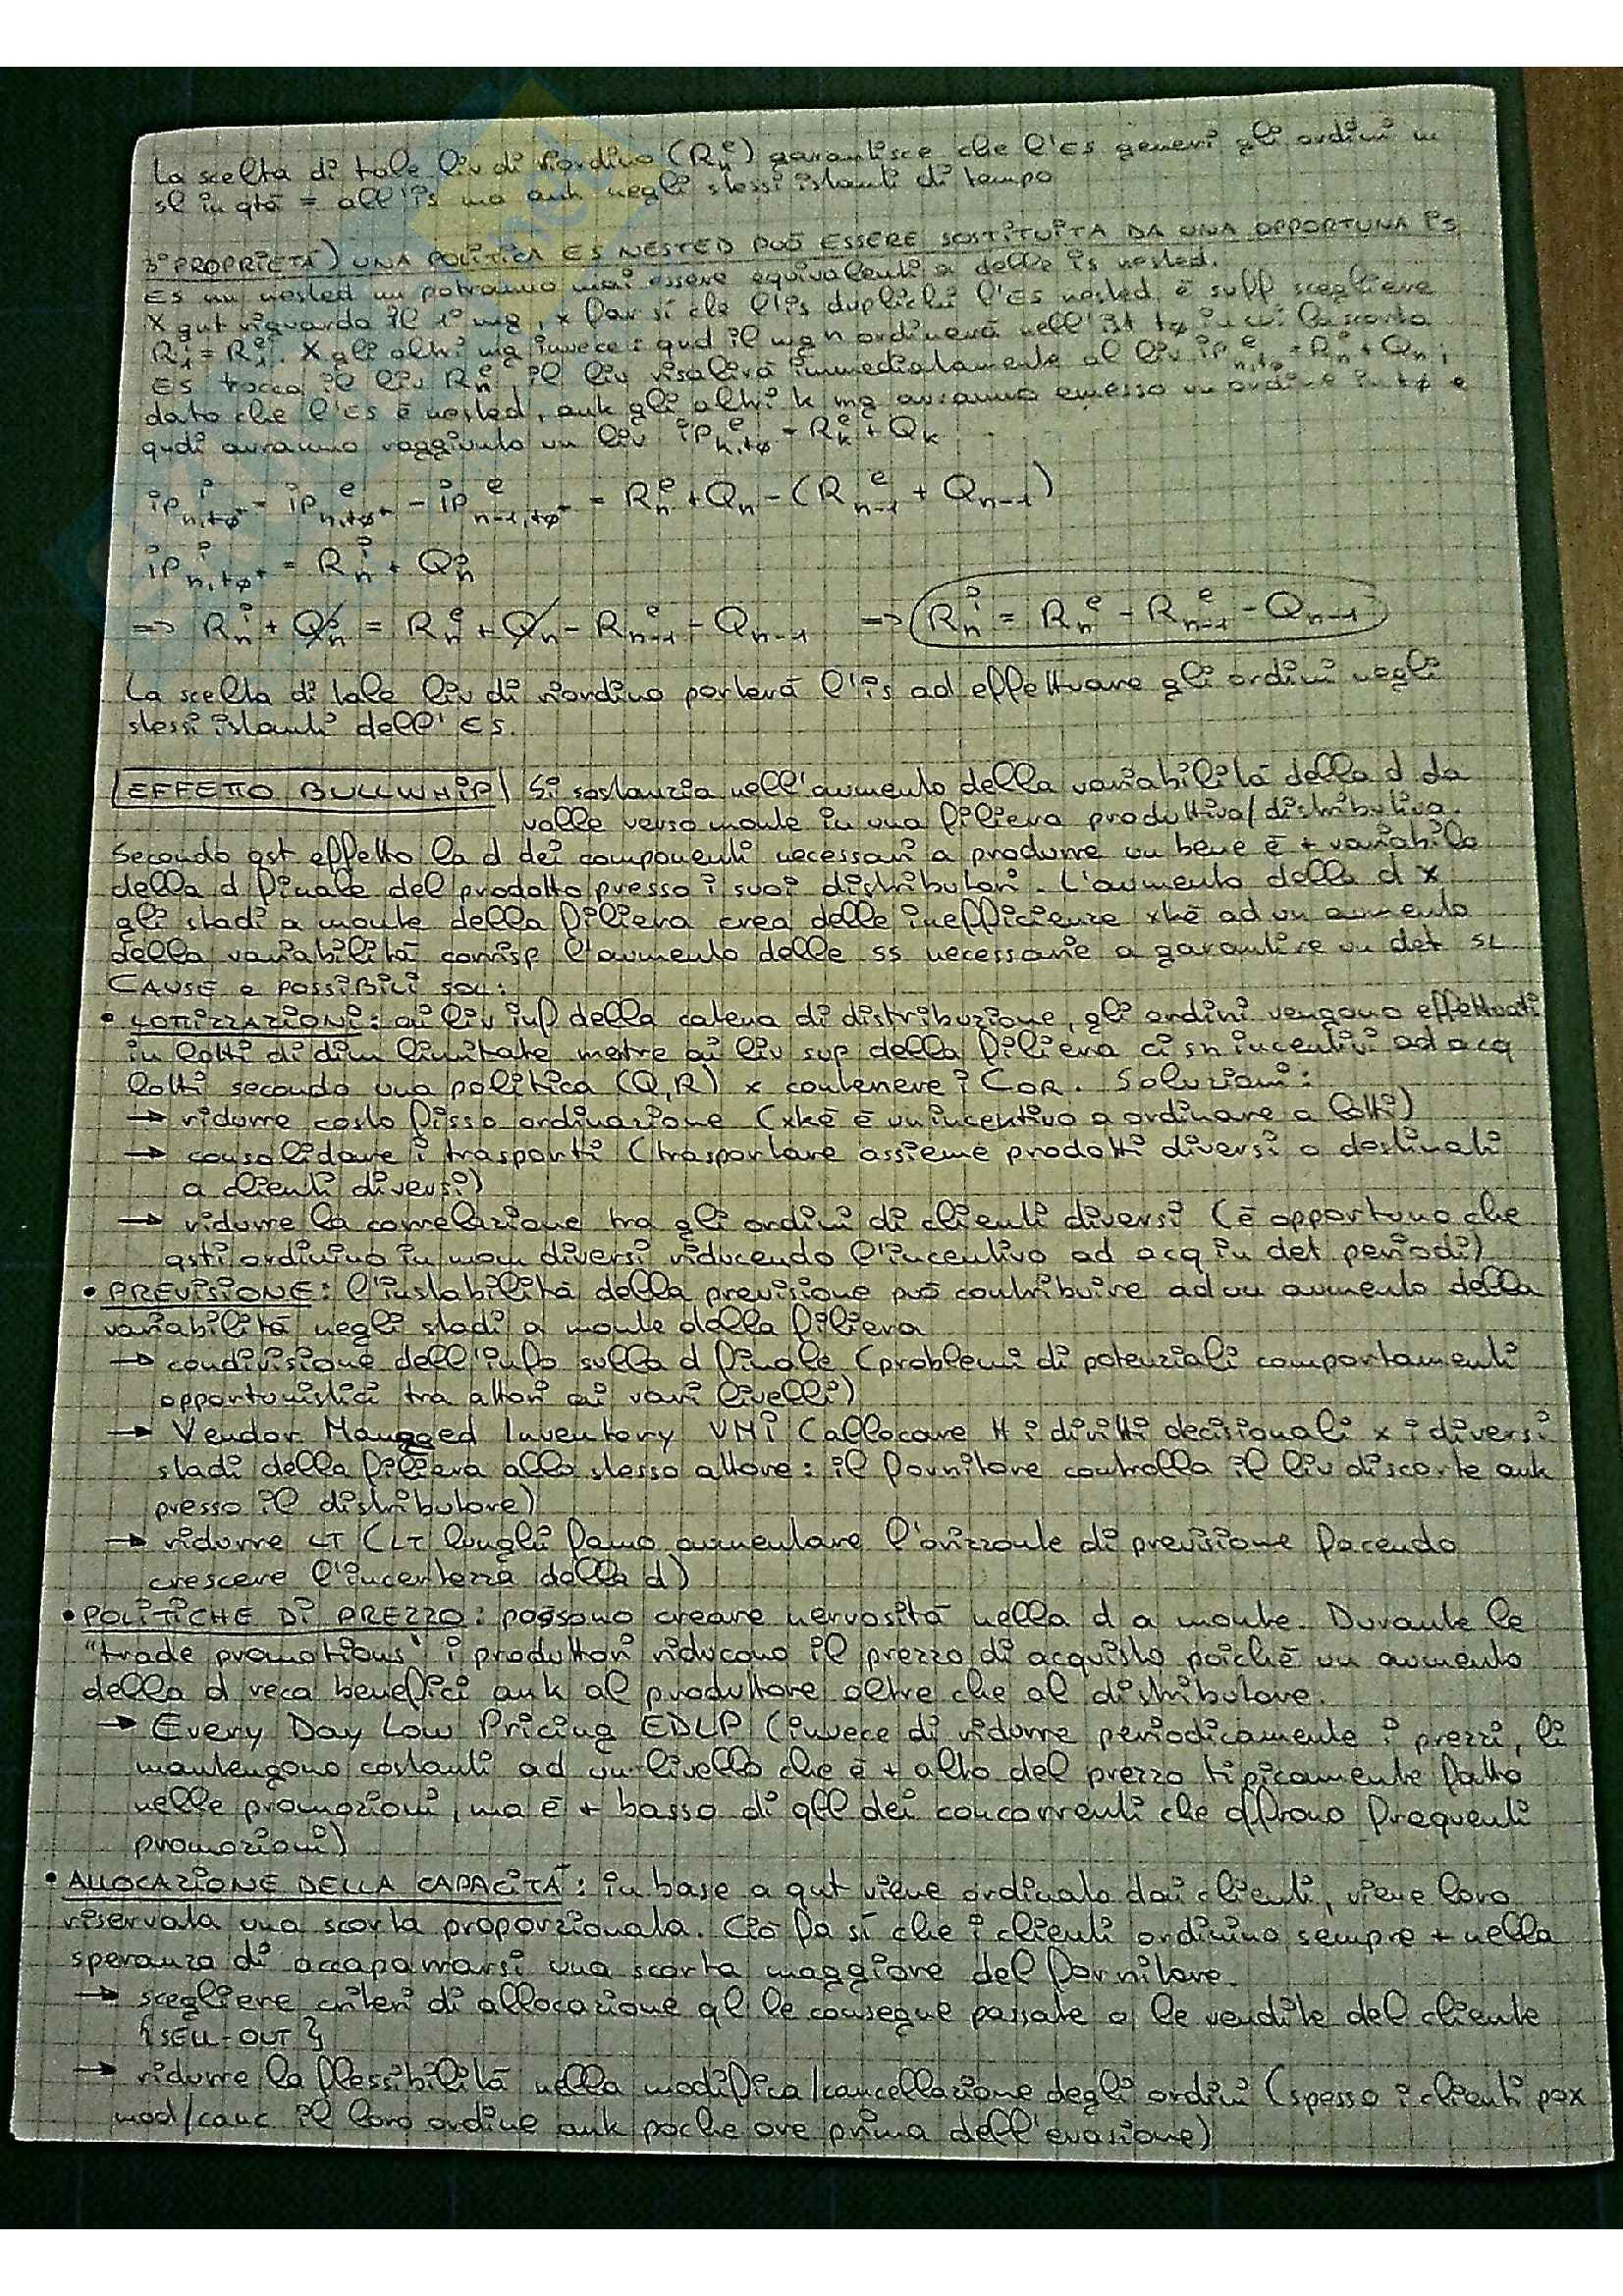 La scelta di tale liv di riordino (Rₙᵉ) garantisce che l'ES generi gli ordini nn
sl in qtà = all'is ma ank negli stessi istanti di tempo
3° PROPRIETÀ) UNA POLITICA ES NESTED PUÒ ESSERE SOSTITUITA DA UNA OPPORTUNA IS.
ES nn nested nn potranno mai essere equivalenti a delle is nested.
X qnt riguarda il 1° mg, x far sì che l'is duplichi l'ES nested è suff scegliere
R₁ⁱ = R₁ᵉ. X gli altri mg invece: qnd il mg n ordinerà nell'ist tø in cui la scorta
ES tocca il liv Rₙᵉ, il liv risalirà immediatamente al liv ipₙ,tøᵉ = Rₙᵉ + Qₙ;
dato che l'ES è nested, ank gli altri k mg avranno emesso un ordine in tø e
qndi avranno raggiunto un liv ipₖ,tøᵉ = Rₖᵉ + Qₖ
ipⁱₙ,tø⁺ = ipᵉₙ,tø⁺ - ipᵉₙ₋₁,tø⁺ = Rₙᵉ + Qₙ - (Rₙ₋₁ᵉ + Qₙ₋₁)
ipⁱₙ,tø⁺ = Rₙⁱ + Qₙⁱ
=> Rₙⁱ + Qₙⁱ = Rₙᵉ + Qₙ - Rₙ₋₁ᵉ - Qₙ₋₁ => Rₙⁱ = Rₙᵉ - Rₙ₋₁ᵉ - Qₙ₋₁
La scelta di tale liv di riordino porterà l'is ad effettuare gli ordini negli
stessi istanti dell'ES.
EFFETTO BULLWHIP Si sostanzia nell'aumento della variabilità della d da
valle verso monte in una filiera produttiva/distributiva.
Secondo qst effetto la d dei componenti necessari a produrre un bene è + variabile
della d finale del prodotto presso i suoi distributori. L'aumento della d x
gli stadi a monte della filiera crea delle inefficienze xkè ad un aumento
della variabilità corrisp l'aumento delle ss necessarie a garantire un det SL
CAUSE e POSSIBILI SOL:
• LOTTIZZAZIONI: ai liv inf della catena di distribuzione, gli ordini vengono effettuati
in lotti di dim limitate mentre ai liv sup della filiera ci sn incentivi ad acq
lotti secondo una politica (Q,R) x contenere i COR. Soluzioni:
→ ridurre costo fisso ordinazione (xkè è un incentivo a ordinare a lotti)
→ consolidare i trasporti (trasportare assieme prodotti diversi o destinati
a clienti diversi)
→ ridurre la correlazione tra gli ordini di clienti diversi (è opportuno che
qsti ordinino in mom diversi riducendo l'incentivo ad acq in det periodi)
• PREVISIONE: l'instabilità della previsione può contribuire ad un aumento della
variabilità negli stadi a monte della filiera
→ condivisione dell'info sulla d finale (problemi di potenziali comportamenti
opportunistici tra attori ai vari livelli)
→ Vendor Managed Inventory VMI (allocare tt i diritti decisionali x i diversi
stadi della filiera allo stesso attore: il fornitore controlla il liv di scorte ank
presso il distributore)
→ ridurre LT (LT lunghi fanno aumentare l'orizzonte di previsione facendo
crescere l'incertezza della d)
• POLITICHE DI PREZZO: possono creare nervosità nella d a monte. Durante le
"trade promotions" i produttori riducono il prezzo di acquisto poichè un aumento
della d reca benefici ank al produttore oltre che al distributore.
→ Every Day Low Pricing EDLP (invece di ridurre periodicamente i prezzi, li
mantengono costanti ad un livello che è + alto del prezzo tipicamente fatto
nelle promozioni, ma è + basso di qll dei concorrenti che offrono frequenti
promozioni)
• ALLOCAZIONE DELLA CAPACITÀ: in base a qnt viene ordinato dai clienti, viene loro
riservata una scorta proporzionata. Ciò fa sì che i clienti ordinino sempre + nella
speranza di accaparrarsi una scorta maggiore del fornitore.
→ scegliere criteri di allocazione ql le consegne passate o le vendite del cliente
{SELL-OUT}
→ ridurre la flessibilità nella modifica/cancellazione degli ordini (spesso i clienti pox
mod/canc il loro ordine ank poche ore prima dell'evasione)